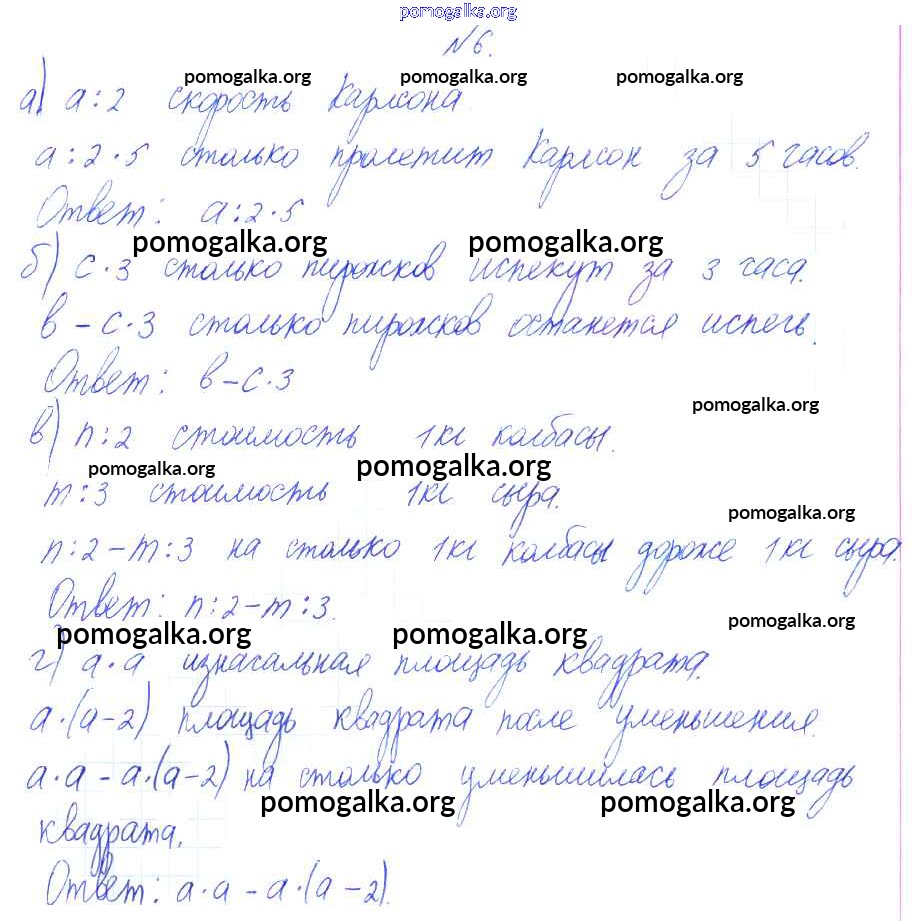 pomogalka.org
№6.
pomogalka.org pomogalka.org pomogalka.org
а) а:2 скорость Карлсона
а:2·5 столько пролетит Карлсон за 5 часов.
Ответ: а:2·5
pomogalka.org pomogalka.org
б) с·3 столько пирожков испекут за 3 часа.
в-с·3 столько пирожков останется испечь.
Ответ: в-с·3
pomogalka.org
в) n:2 стоимость 1кг колбасы.
pomogalka.org pomogalka.org
m:3 стоимость 1кг сыра.
pomogalka.org
n:2-m:3 на столько 1кг колбасы дороже 1кг сыра.
Ответ: n:2-m:3.
pomogalka.org
pomogalka.org pomogalka.org
г) а·а изначальная площадь квадрата.
а·(а-2) площадь квадрата после уменьшения.
а·а-а·(а-2) на столько уменьшилась площадь
pomogalka.org pomogalka.org
квадрата.
Ответ: а·а-а·(а-2).